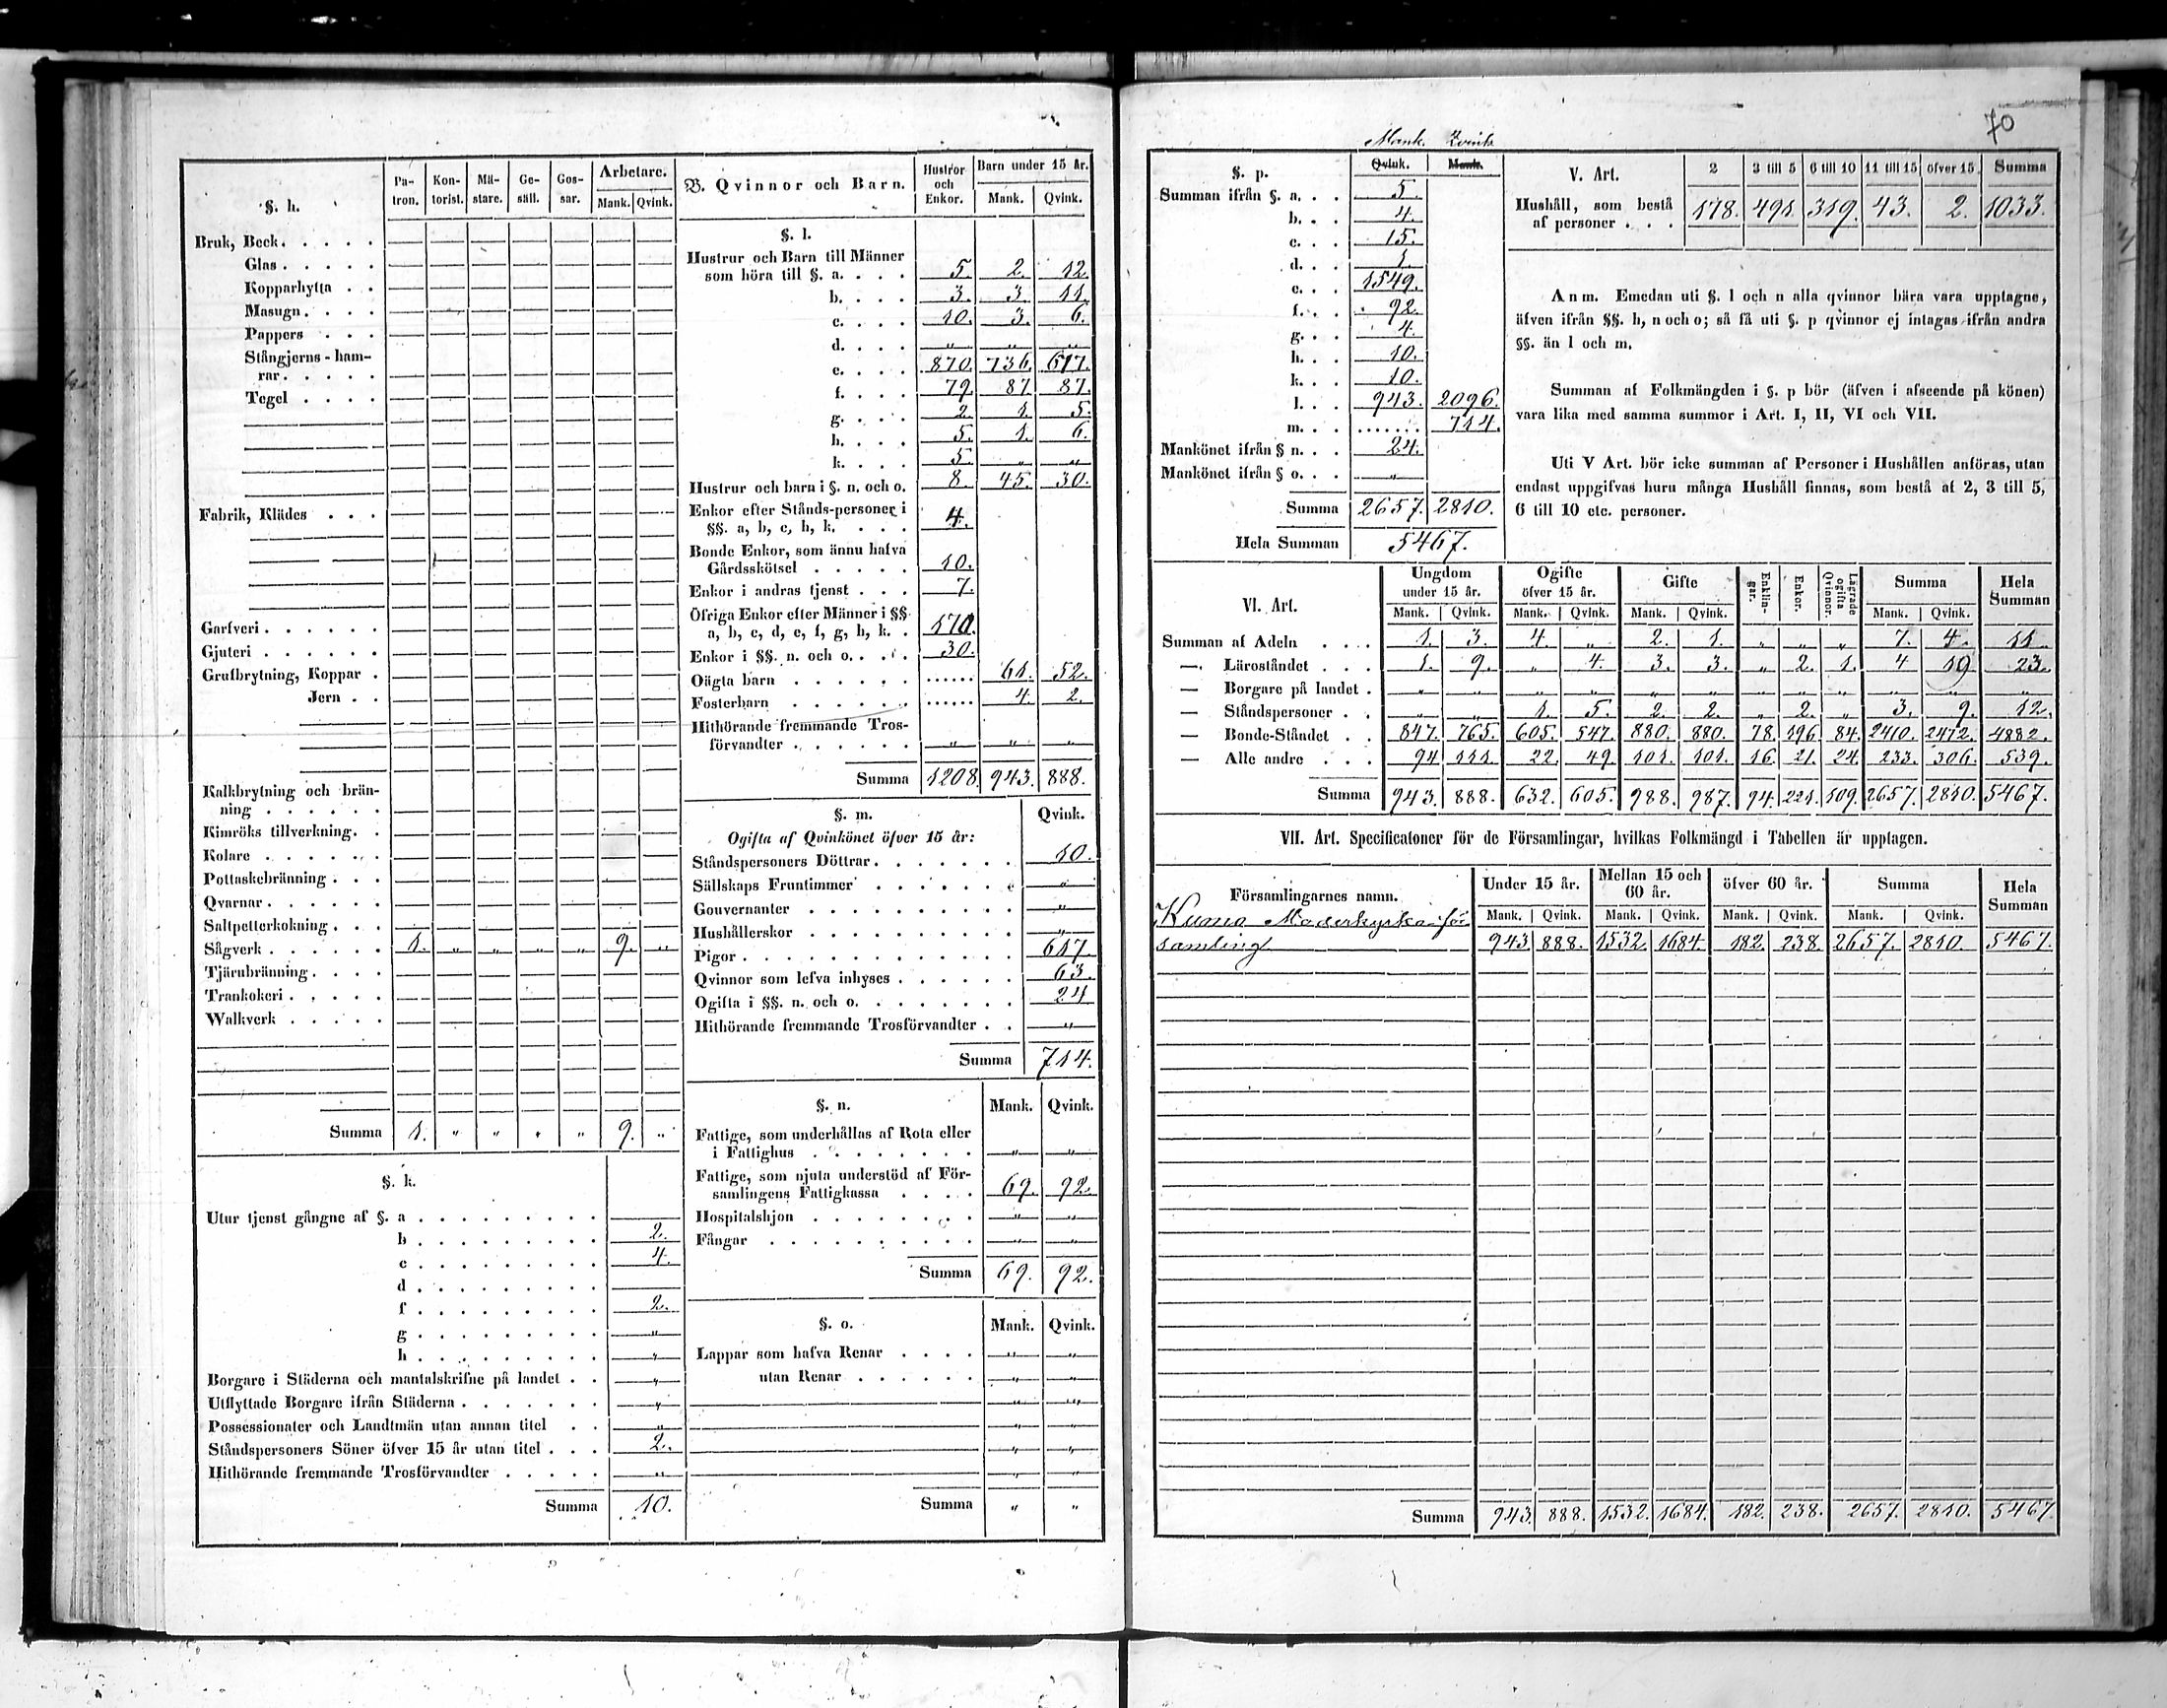 §. h.
Pa-tron. Kon-torist. Mä-stare. Ge-säll. Gos-sar. Arbetare. Mank. Qvink.
Bruk, Beck . . . . .
Glas . . . . .
Kopparhytta . .
Masugn . . . .
Pappers . . .
Stångjerns-ham-
rar . . . . .
Tegel . . . .
Fabrik, Klädes . . .
Garfveri . . . . . .
Gjuteri . . . . . .
Grufbrytning, Koppar .
Jern . .
Kalkbrytning och brän-
ning . . . . .
Kimröks tillverkning . .
Kolare . . . . . .
Pottaskebränning . . .
Qvarnar . . . . . .
Saltpetterkokning . . .
Sågverk . . . . . . 1. „ „ „ „ 9. „
Tjärubränning . . . .
Trankokeri . . . . .
Walkverk . . . . .
Summa 1. „ „ „ „ 9. „
§. k.
Utur tjenst gångne af §. a . . . . . . . . .
b . . . . . . . . . 2.
c . . . . . . . . . 4.
d . . . . . . . . .
f . . . . . . . . . 2.
g . . . . . . . . . „
h . . . . . . . . . „
Borgare i Städerna och mantalskrifne på landet . . „
Utflyttade Borgare ifrån Städerna . . . . . . . „
Possessionater och Landtmän utan annan titel . . „
Ståndspersoners Söner öfver 15 år utan titel . . . 2.
Hithörande fremmande Trosförvandter . . . . . „
Summa 10.
B. Qvinnor och Barn. Hustror och Enkor. Barn under 15 år. Mank. Qvink.
§. l.
Hustrur och Barn till Männer
som höra till §. a. . . . 5. 2. 12.
b. . . . 3. 3. 11.
c. . . . 10. 3. 6.
d. . . . „ „ „
e. . . . 870. 736. 677.
f. . . . 79. 87. 87.
g. . . . 2. 1. 5.
h. . . . 5. 1. 6.
k. . . . 5. „ „
Hustrur och barn i §. n. och o. 8. 45. 30.
Enkor efter Stånds-personer i
§§. a, b, c, h, k. . . . 4.
Bonde Enkor, som ännu hafva
Gårdsskötsel . . . . . 10.
Enkor i andras tjenst . . . 7.
Öfriga Enkor efter Männer i §§
a, b, c, d, e, f, g, h, k. . 170.
Enkor i §§. n. och o. . . . 30.
Oägta barn . . . . . . ...... 61. 52.
Fosterbarn . . . . . . ...... 4. 2.
Hithörande fremmande Tros-
förvandter . . . . . . „ „ „
Summa 1208. 943. 888.
§. m. Qvink.
Ogifta af Qvinkönet öfver 15 år:
Ståndspersoners Döttrar . . . . . . . 10.
Sällskaps Fruntimmer . . . . . . „
Gouvernanter . . . . . . . . . „
Hushållerskor . . . . . . . . . „
Pigor . . . . . . . . . . . . 617.
Qvinnor som lefva inhyses . . . . . . 63.
Ogifta i §§. n. och o. . . . . . . . 24
Hithörande fremmande Trosförvandter . . „
Summa 714.
§. n. Mank. Qvink.
Fattige, som underhållas af Rota eller
i Fattighus . . . . . . . „ „
Fattige, som njuta understöd af För-
samlingens Fattigkassa . . . . 69. 92.
Hospitalshjon . . . . . . . . „ „
Fångar . . . . . . . . . . „ „
Summa 69. 92.
§. o. Mank. Qvink.
Lappar som hafva Renar . . . . „ „
utan Renar . . . . . . „ „
„ „
„ „
„ „
„ „
Summa „ „
70
Mank. Qvink
§. p. Qvink. Mank.
Summan ifrån §. a. . . 5.
b. . . 4.
c. . . 15.
d. . . 1.
e. . . 1549.
f. . . 92.
g. . . 4.
h. . . 10.
k. . . 10.
l. . . 943. 2096.
m. . . ....... 714.
Mankönet ifrån § n. . . 24.
Mankönet ifrån § o. . . „
Summa 2657. 2810.
Hela Summan 5467.
V. Art. 2 3 till 5 6 till 10 11 till 15 öfver 15. Summa
Hushåll, som bestå
af personer . . . 178. 491. 319. 43. 2. 1033.
Anm. Emedan uti §. l och n alla qvinnor bära vara upptagne,
äfven ifrån §§. h, n och o; så få uti §. p qvinnor ej intagas ifrån andra
§§. än l och m.
Summan af Folkmängden i §. p bör (äfven i afseende på könen)
vara lika med samma summor i Art. I, II, VI och VII.
Uti V Art. bör icke summan af Personer i Hushållen anföras, utan
endast uppgifvas huru många Hushåll finnas, som bestå af 2, 3 till 5,
6 till 10 etc. personer.
VI. Art. Ungdom under 15 år. Mank. Qvink. Ogifte öfver 15 år. Mank. Qvink. Gifte Mank. Qvink. Enklin-gar. Enkor. Lägrade ogifta Qvinnor. Summa Mank. Qvink. Hela Summan
Summan af Adeln . . . . 1. 3. 4. „ 2. 1. „ „ „ 7. 4. 11
— Läroståndet . . . 1. 9. „ 4. 3. 3. „ 2. 1. 4 19 23.
— Borgare på landet . „ „ „ „ „ „ „ „ „ „ „ „
— Ståndspersoner . . „ „ 1. 5. 2. 2. „ 2. „ 3. 9. 12.
— Bonde-Ståndet . . 847. 765. 605. 547. 880. 880. 78. 196. 84. 2410. 2472. 4882.
— Alle andre . . . 94 111. 22. 49. 101. 101. 16. 21. 24. 233. 306. 539.
Summa 943. 888. 632. 605. 988. 987. 94. 221. 109. 2657. 2810. 5467.
VII. Art. Specificatoner för de Församlingar, hvilkas Folkmängd i Tabellen är upptagen.
Församlingarnes namn. Under 15 år. Mank. Qvink. Mellan 15 och 60 år. Mank. Qvink. öfver 60 år. Mank. Qvink. Summa Mank. Qvink. Hela Summan
Kumo Moderkyrko för
samling 943 888. 1532. 1684. 182. 238. 2657. 2810. 5467.
Summa 943. 888. 1532. 1684. 182. 238. 2657. 2810. 5467.